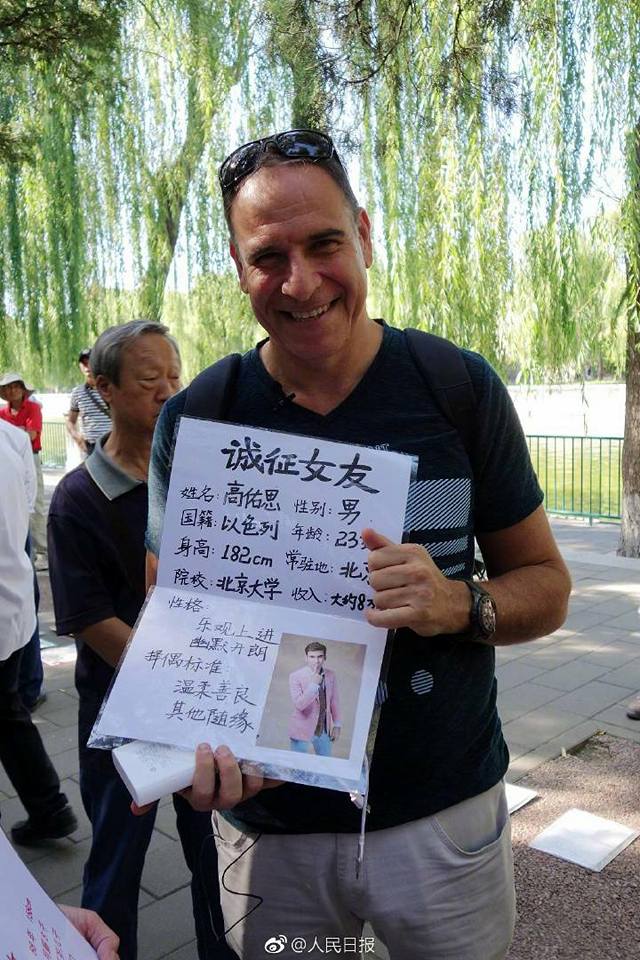 诚征女友
姓名:高佑思 性别:男
国籍:以色列 年龄:23
身高:182cm 常驻地:北
院校:北京大学 收入:大约8
性格:
乐观上进
幽默开朗
择偶标准:
温柔善良
其他随缘
@人民日报